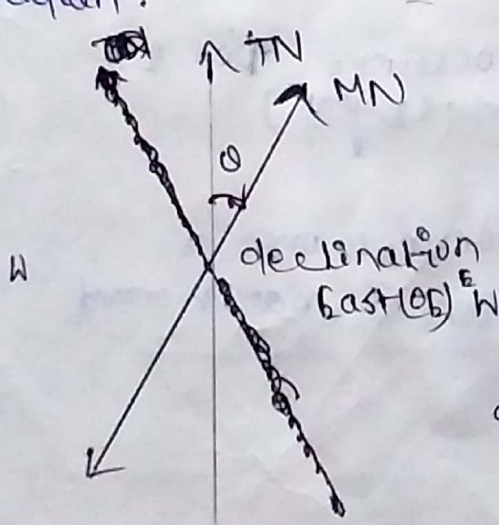 TN
MN
θ
W
declination
East(θE) E W